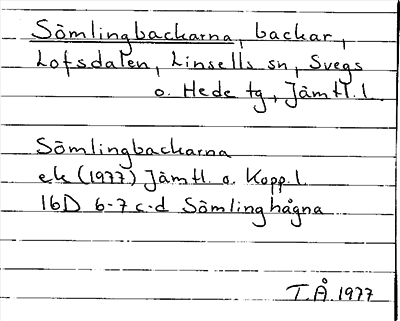 Sömlingbackarna, backar,
Lofsdalen, Linsells sn, Svegs
o. Hede tg, Jämtl. l.
Sömlingbackarna
ek (1977) Jämtl. o. Kopp. l.
16D 6-7 c-d Sömlinghågna
T.Å. 1977